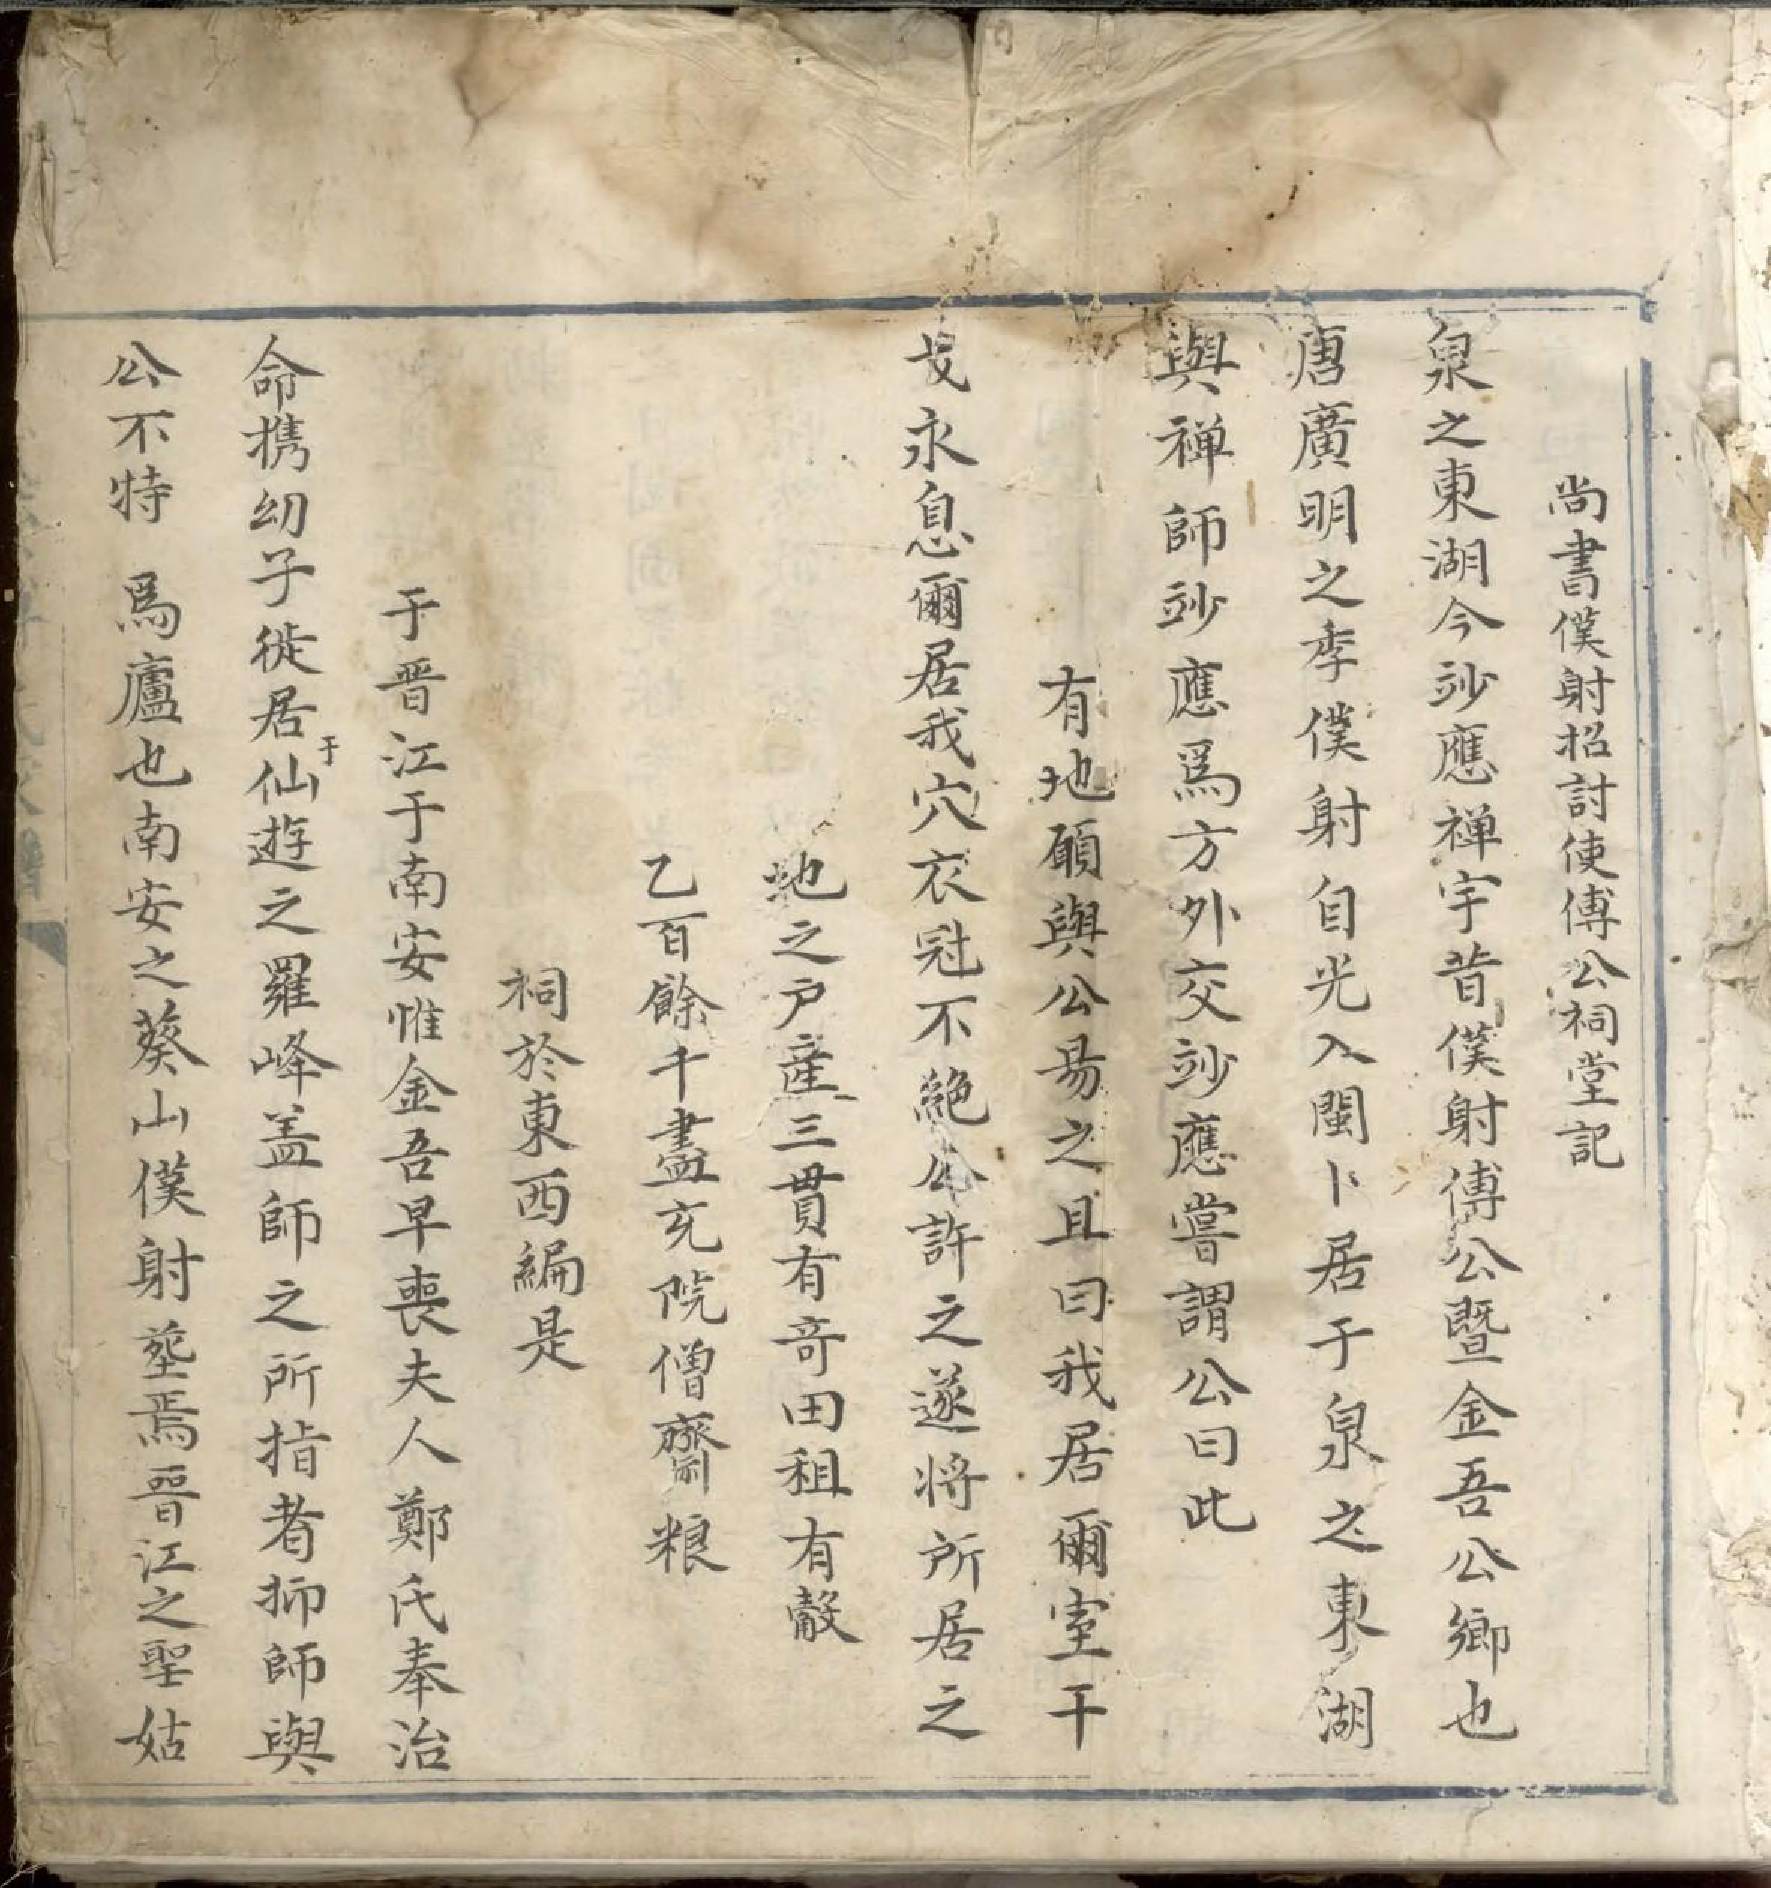 尚書僕射招討使傅公祠堂記
泉之東湖今竗應禅宇昔僕射傅公暨金吾公鄉也
唐廣明之季僕射自光入閩卜居于泉之東湖
與禅師竗應爲方外交竗應嘗謂公曰此
有地願與公昜之且曰我居爾室干
戈永息爾居我穴衣冠不絶公許之遂将所居之
地之户産三貫有竒田租有榖
乙百餘千盡充院僧齋粮
祠於東西編是
于晋江于南安惟金吾早喪夫人鄭氏奉治
命携幼子徙居于仙遊之羅峰盖師之所指者抑師與
公不特 爲廬也南安之葵山僕射塟焉晋江之聖姑